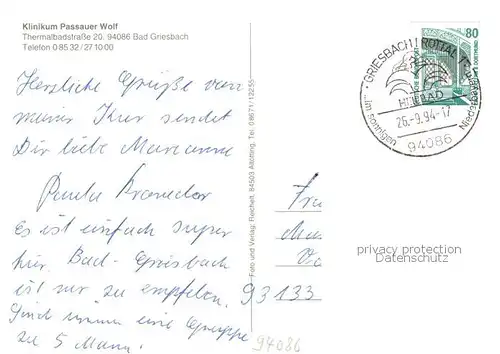 Klinikum Passauer Wolf
Thermalbadstraße 20, 94086 Bad Griesbach
Telefon 0 85 32 / 27 10 00
Herzliche Grüße von
meiner Kur sendet
Dir liebe Marianne
Paula
Es ist einfach super
hier. Bad-Griesbach
ist nur zu empfelen.
Sind immer eine Gruppe
zu 5 Mann!
Foto und Verlag: Fleichelt, 84503 Altötting, Tel. 08671/12255
80
GRIESBACH I. ROTTAL
HEILBAD
26.-9.94-17
94086
...im sonnigen
Fra
93133
94086
privacy protection
Datenschutz